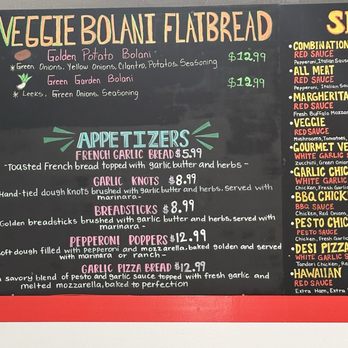 VEGGIE BOLANI FLATBREAD
Golden Potato Bolani $12.99
*Green Onions, Yellow Onions, Cilantro, Potatos, Seasoning
Green Garden Bolani $12.99
* Leeks, Green Onions, Seasoning
APPETIZERS
FRENCH GARLIC BREAD $5.99
-Toasted French bread topped with garlic butter and herbs -
GARLIC KNOTS $8.99
Hand-tied dough knots brushed with garlic butter and herbs, served with
marinara -
BREADSTICKS $8.99
Golden breadsticks brushed with garlic butter and herbs, served with
- marinara -
PEPPERONI POPPERS $12.99
Soft dough filled with pepperoni and mozzarella, baked golden and served
with marinara or ranch -
GARLIC PIZZA BREAD $12.99
savory blend of pesto and garlic sauce topped with fresh garlic and
melted mozzarella, baked to perfection
• COMBINATION
RED SAUCE
Pepperoni, Italian Sa
• ALL MEAT
RED SAUCE
Pepperoni, Italian
• MARGHERITA
RED SAUCE
Fresh Buffalo Mozzar
• VEGGIE
RED SAUCE
Mushrooms, Tomatoes,
• GOURMET VE
WHITE GARLIC S
Zucchini, Green Onion
• GARLIC CHIC
WHITE GARLIC
Chicken, Fresh Garlic
• BBQ CHICK
BBQ SAUCE
Chicken, Red Onions,
• PESTO CHIC
PESTO SAUCE
Chicken, Fresh Garli
• DESI PIZZA
WHITE GARLIC S
Tandori Chicken, Re
• HAWAIIAN
RED SAUCE
Extra Ham, Extra